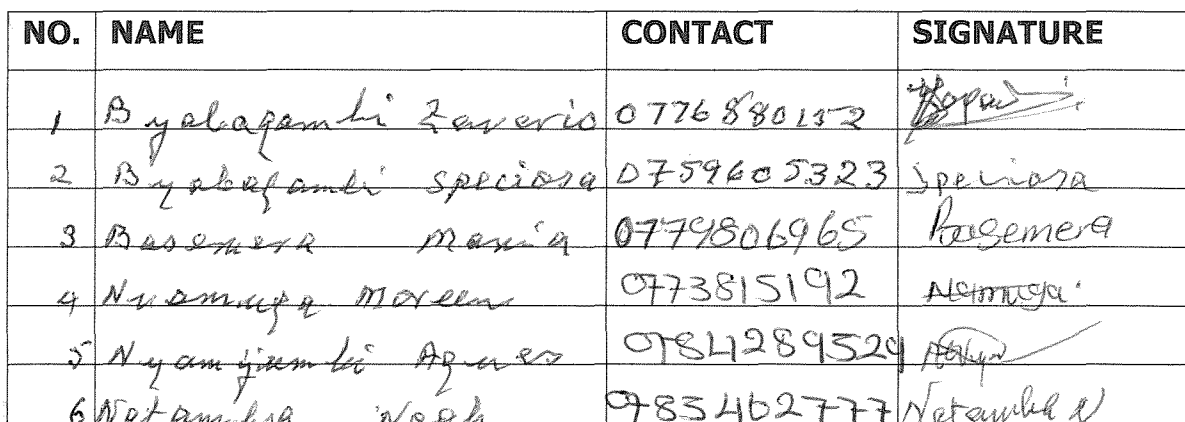 NO. NAME CONTACT SIGNATURE
1 Byabagambi Zaverio 0776880152
2 Byabagambi Speciosa 0759605323 Speciosa
3 Basemera Maria 0779806965 Basemera
4 Moreen 0773815192
5 Agnes 0784289529
6 Natamba Noah 0785462777 Natamba N